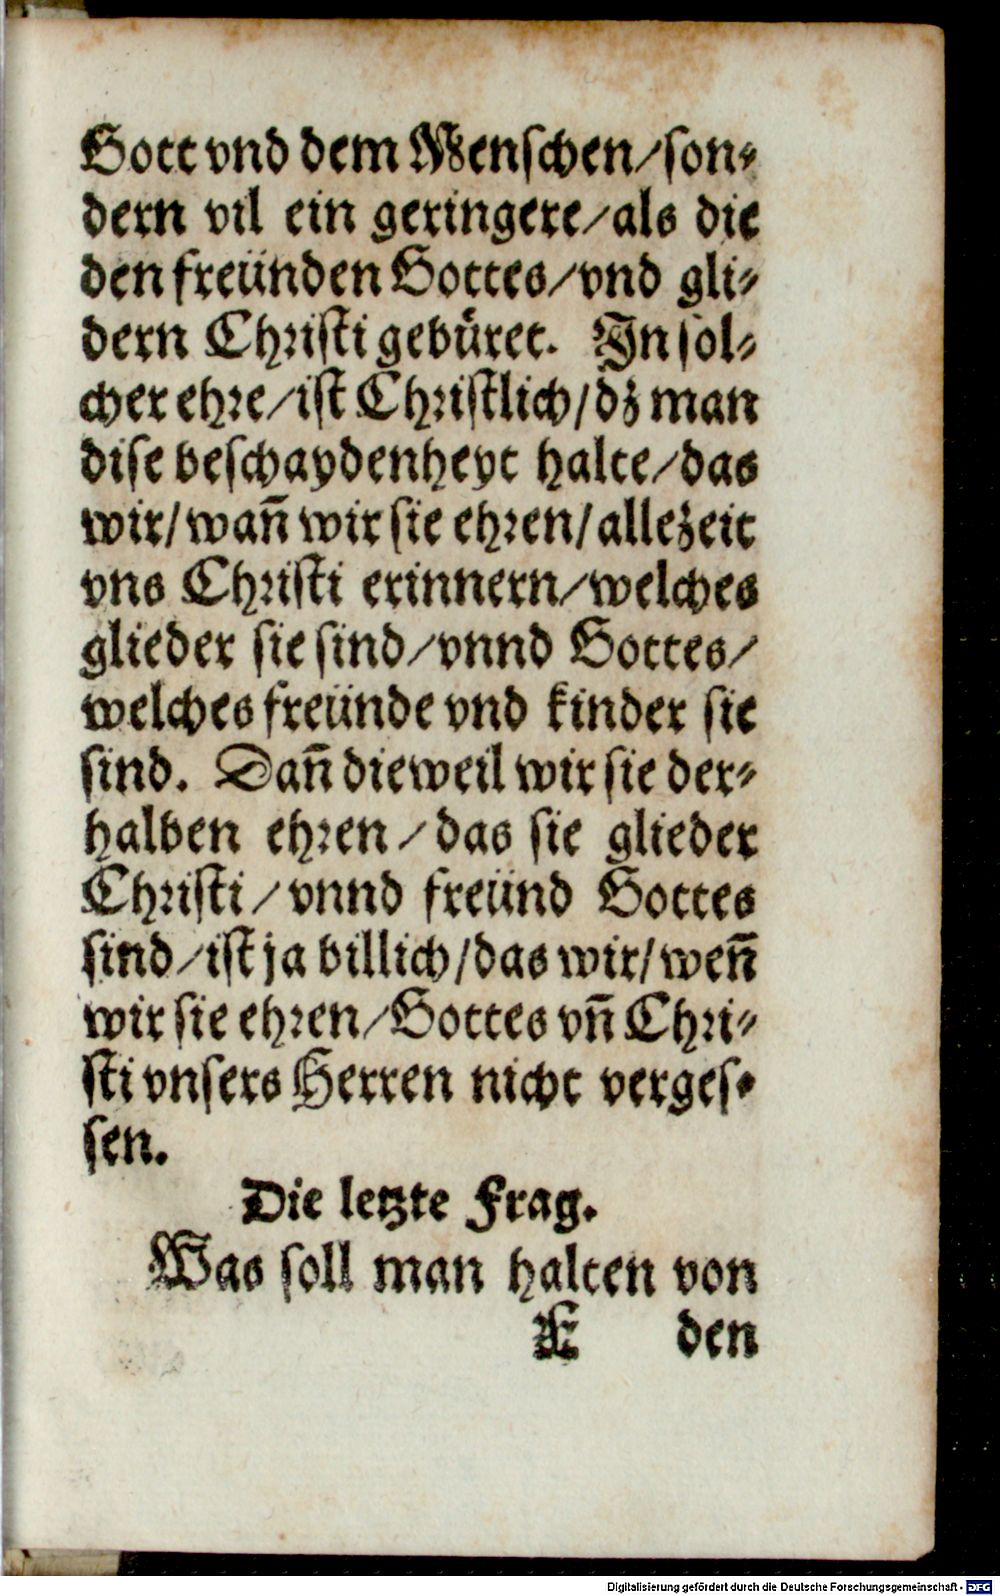 Gott vnd dem Menschen/son⸗
dern vil ein geringere/als die
den freünden Gottes/vnd gli⸗
dern Christi gebüret. In sol⸗
cher ehre/ist Christlich/dz man
dise beschaydenheyt halte/das
wir/wañ wir sie ehren/allezeit
vns Christi erinnern/welches
glieder sie sind/vnnd Gottes/
welches freünde vnd kinder sie
sind. Dañ dieweil wir sie der⸗
halben ehren/das sie glieder
Christi/vnnd freünd Gottes
sind/ist ja billich/das wir/weñ
wir sie ehren/Gottes vñ Chri⸗
sti vnsers Herren nicht verges⸗
sen.
Die letzte Frag.
Was soll man halten von
E den
Digitalisierung gefördert durch die Deutsche Forschungsgemeinschaft - DFG